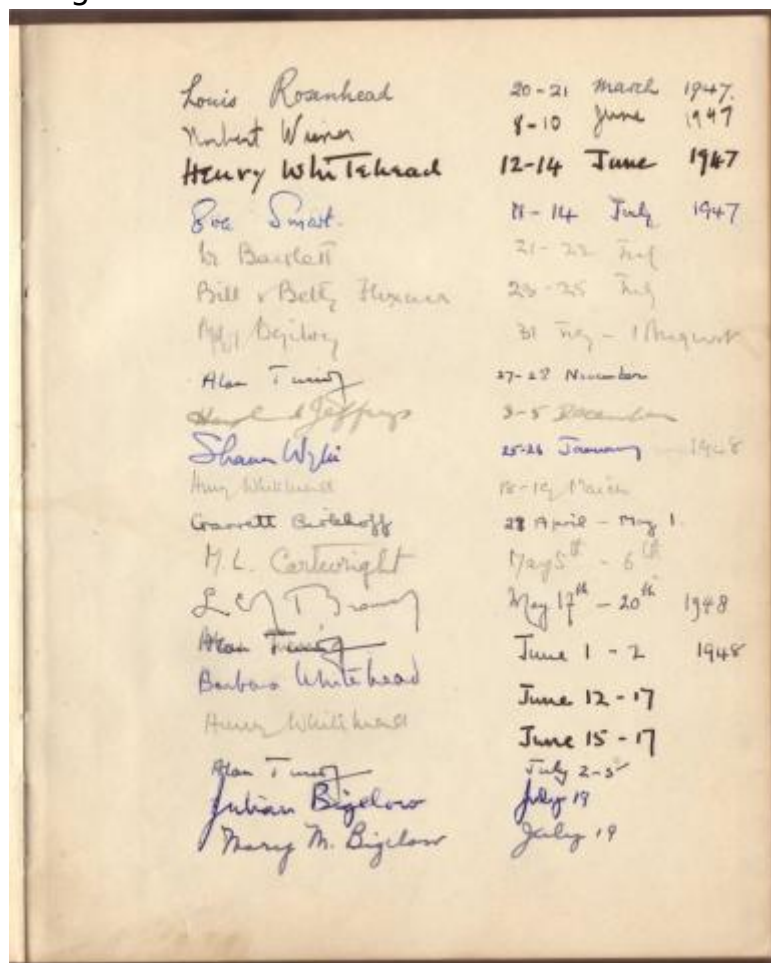 Louis Rosenhead 20-21 March 1947.
Norbert Wiener 8-10 June 1947
Henry Whitehead 12-14 June 1947
Eve Smart. 11-14 July 1947
Bartlett 21-22 July
Bill & Betty Flexner 23-25 July
31 July - 1 August
Alan Turing 27-28 November
Harold Jeffreys 3-5 December
Shaun Wylie 25-26 January 1948
Henry Whitehead 18-19 March
Garrett Birkhoff 28 April - May 1.
M. L. Cartwright May 5th - 6th
May 17th - 20th 1948
Alan Turing June 1-2 1948
Barbara Whitehead June 12-17
Henry Whitehead June 15-17
Alan Turing July 2-5
Julian Bigelow July 19
Mary M. Bigelow July 19